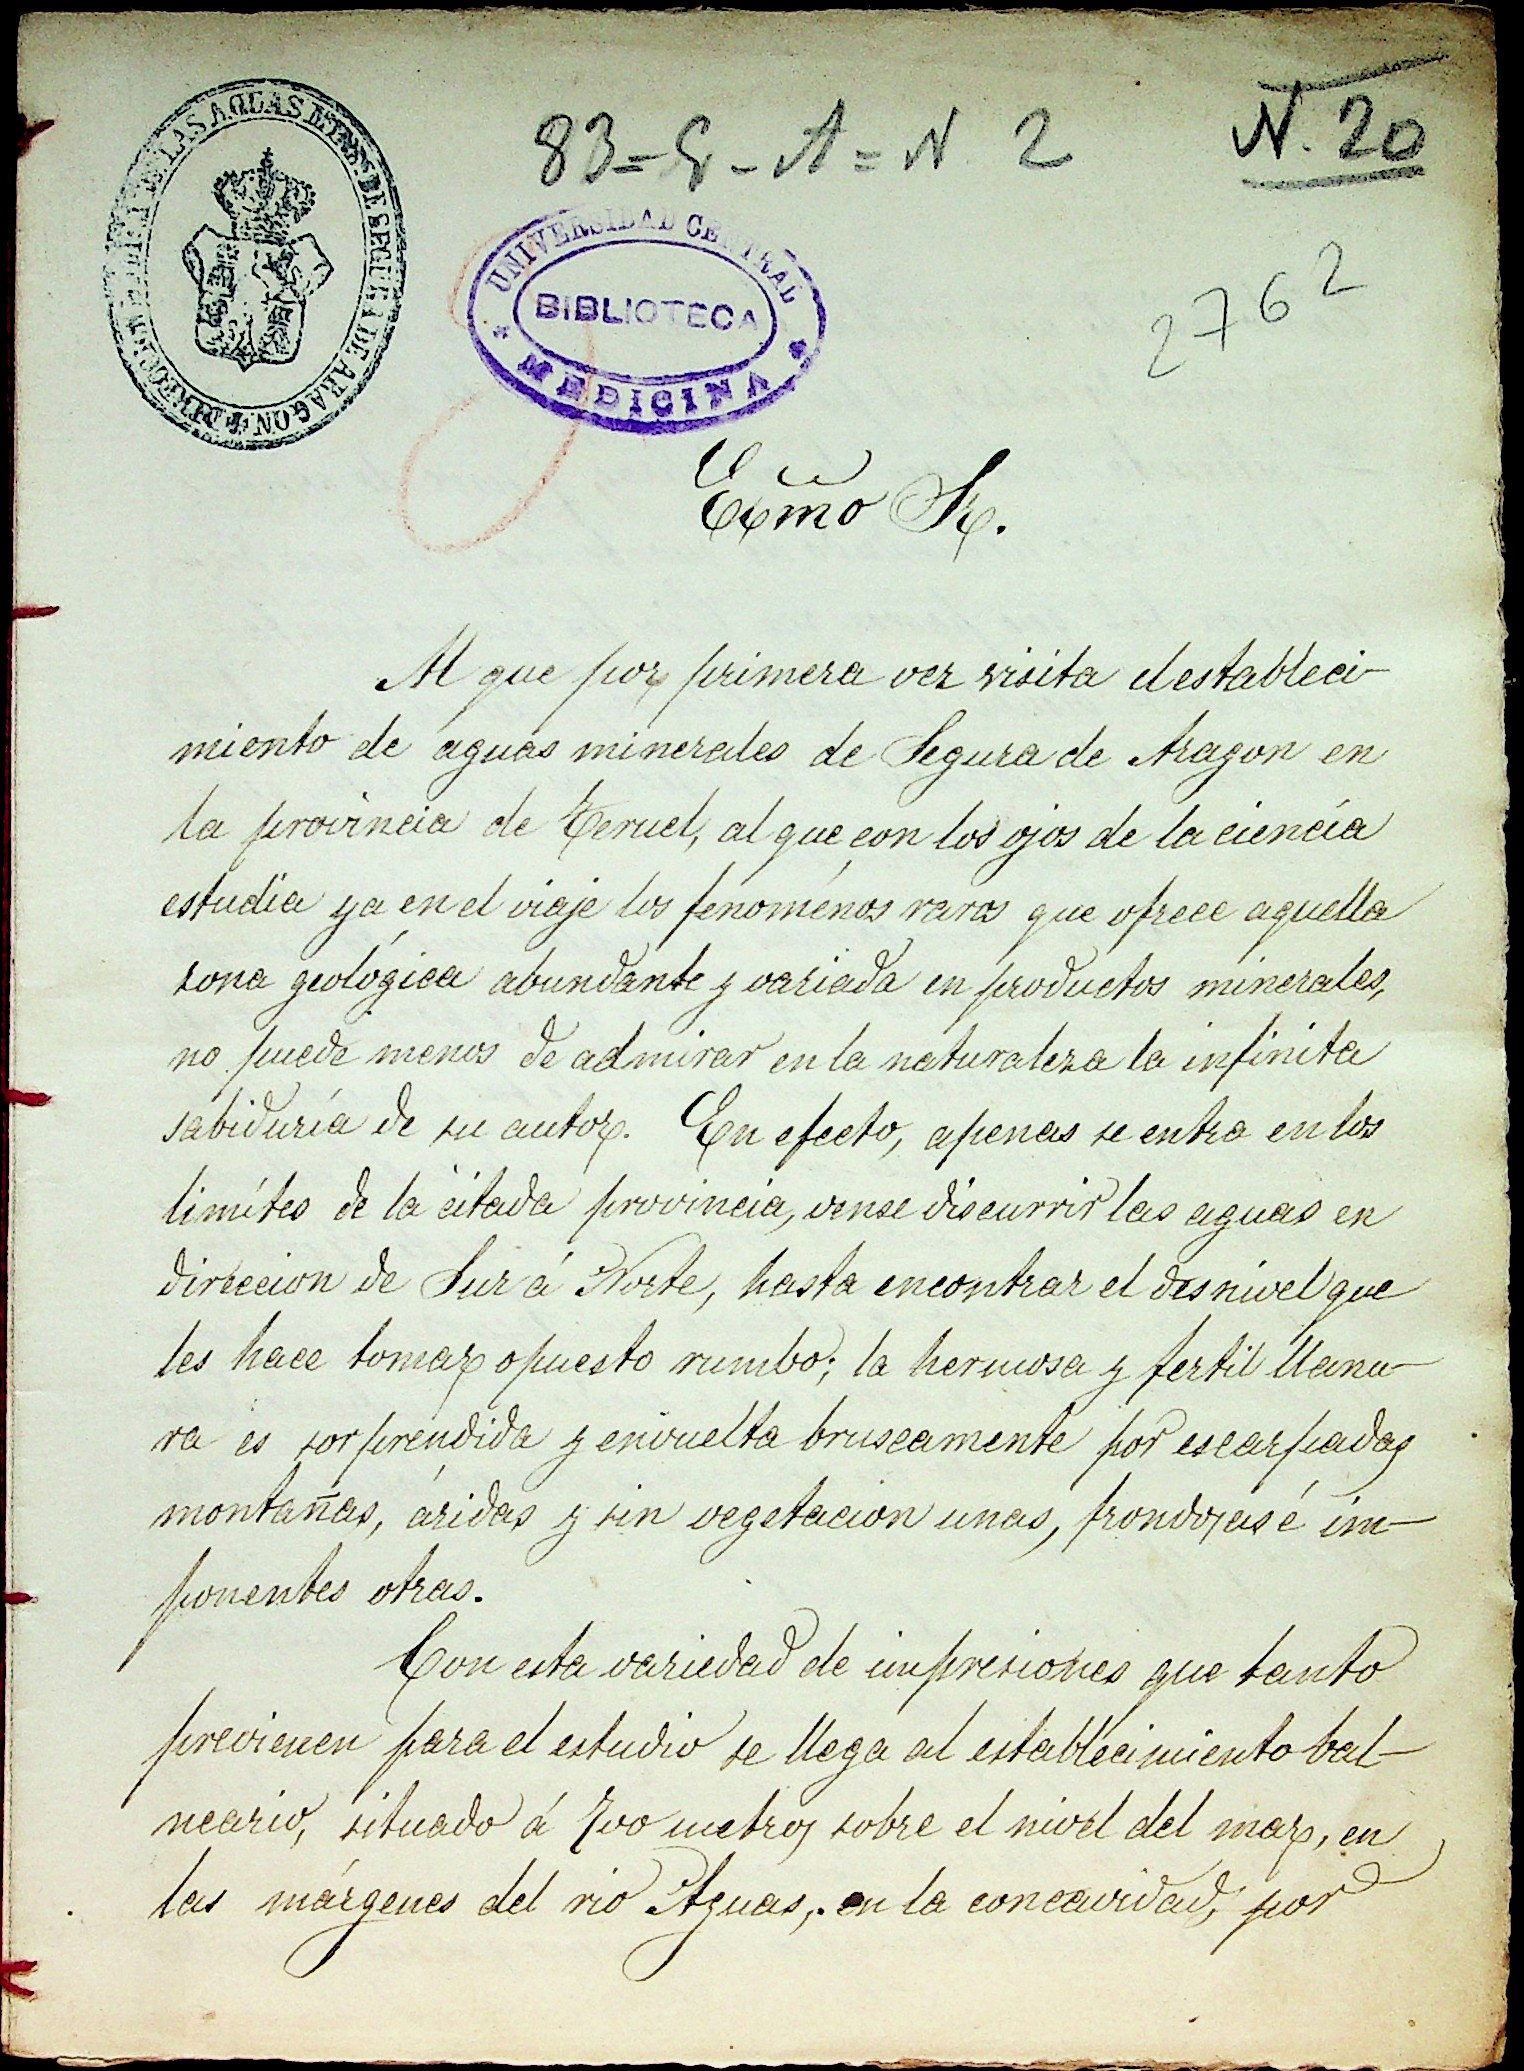 DIRECCION MEDICA DE LAS AGUAS MINS. DE SEGURA DE ARAGON
83=G-A=N 2
N. 20
UNIVERSIDAD CENTRAL
BIBLIOTECA
MEDICINA
2762
Excmo Sr.
Al que por primera vez visita el estableci-
miento de aguas minerales de Segura de Aragon en
la provincia de Teruel, al que con los ojos de la ciencia
estudia ya en el viaje los fenoménos raros que ofrece aquella
zona geológica abundante y variada en productos minerales,
no puede menos de admirar en la naturaleza la infinita
sabiduría de su autor. En efecto, apenas se entra en los
limítes de la citada provincia, vense discurrir las aguas en
direccion de Sur á Norte, hasta encontrar el desnivel que
les hace tomar opuesto rumbo; la hermosa y fertil llanu-
ra es sorprendida y envuelta bruscamente por escarpadas
montañas, áridas y sin vegetacion unas, frondosas é im-
ponentes otras.
Con esta variedad de impresiones que tanto
previenen para el estudio se llega al establecimiento bal-
neario, situado á 700 metros sobre el nivel del mar, en
las márgenes del rio Aguas, en la concavidad, por